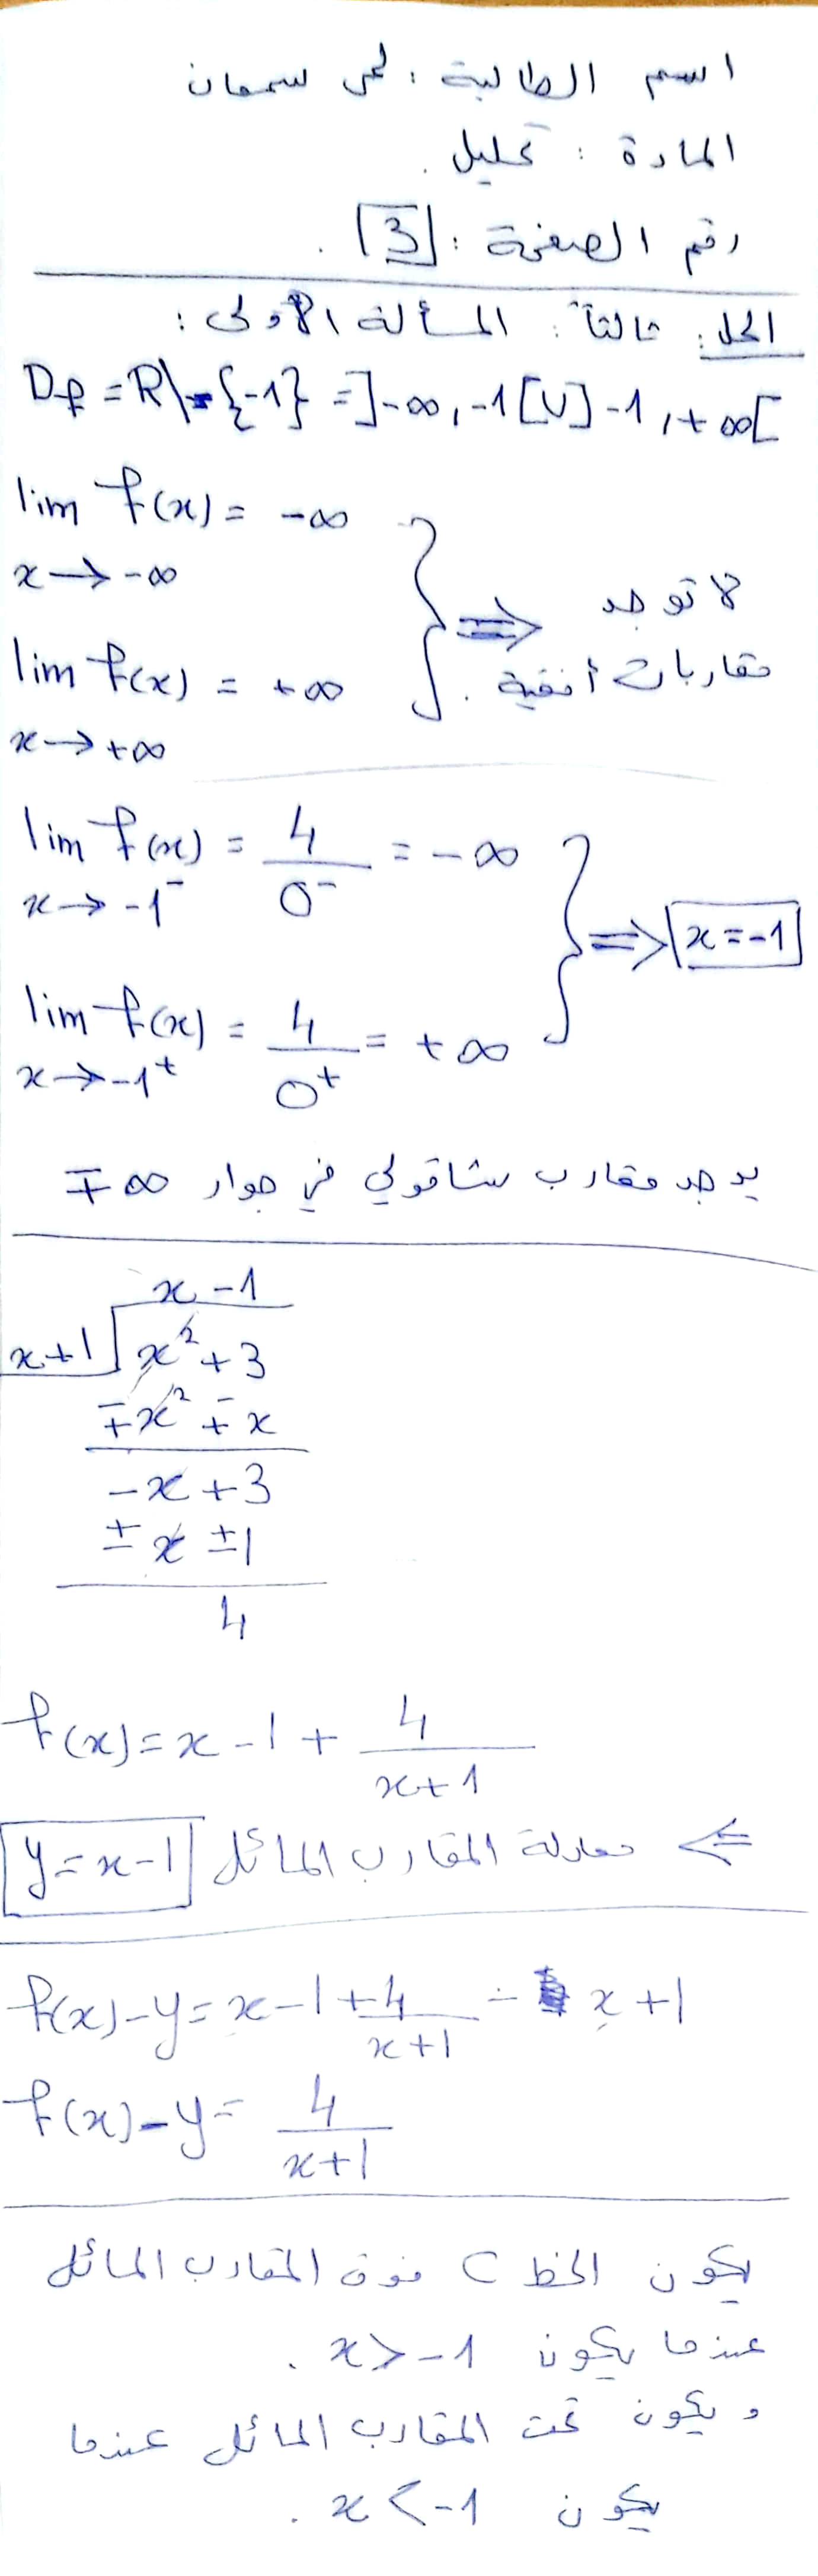 اسم الطالبة : لمى سمعان
المادة : تحليل .
رقم الصفحة : 3 .
الحل : ثالثاً : المسألة الأولى :
Df = R\{-1} = ]-∞, -1[ U ]-1, +∞[
lim f(x) = -∞
x → -∞
لا توجد
مقاربات أفقية .
lim f(x) = +∞
x → +∞
lim f(x) = 4/0⁻ = -∞
x → -1⁻
⇒ x = -1
lim f(x) = 4/0⁺ = +∞
x → -1⁺
يوجد مقارب شاقولي في جوار ∓∞
x - 1
x+1 x² + 3
∓x² ∓ x
-x + 3
± x ± 1
4
f(x) = x - 1 + 4/(x+1)
⇐ معادلة المقارب المائل y = x - 1
f(x) - y = x - 1 + 4/(x+1) - x + 1
f(x) - y = 4/(x+1)
يكون الخط C فوق المقارب المائل
عندما يكون x > -1 .
و يكون تحت المقارب المائل عندما
يكون x < -1 .